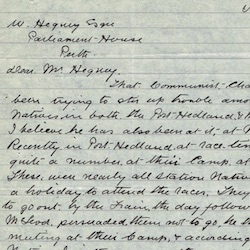 W. Hegney Esqre
Parliament House
Perth
Dear Mr Hegney.
That Communist Cha
been trying to stir up trouble amo
Natives, in both the Port Hedland, & M
I believe he has also been at it, at
Recently, in Port Hedland, at race tim
quite a number, at their Camp, at
These, were nearly all Station Nativ
a holiday to attend the races. They
to go out, by the Train, the day follow
McLeod, persuaded them not to go, he
meeting at their Camp, & accordin